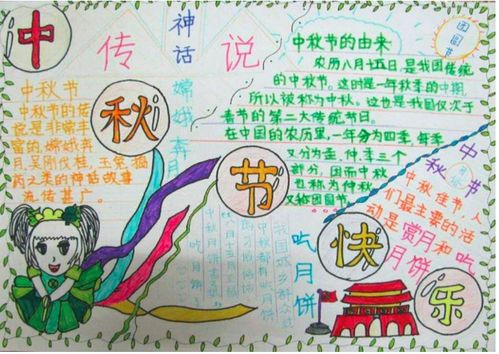 中秋节快乐
神话
传说
团圆节
中秋节的由来
农历八月十五日,是我国传统
的中秋节。这时是一年秋季的中期,
所以被称为中秋。这也是我国仅次于
春节的第二大传统节日。
在中国的农历里,一年分为四季,每季
又分为孟、仲、季三个
部分,因而中秋
也称为仲秋
又称团圆节
嫦娥奔月
中秋节
中秋节的传
说是非常丰
富的,嫦娥奔
月,吴刚伐桂,玉兔捣
药之类的神话故事
流传甚广。
中秋节
中秋佳节,人
们最主要的活
动是赏月和吃
月饼
吃月饼
我国城乡群众过
中秋都有吃月饼